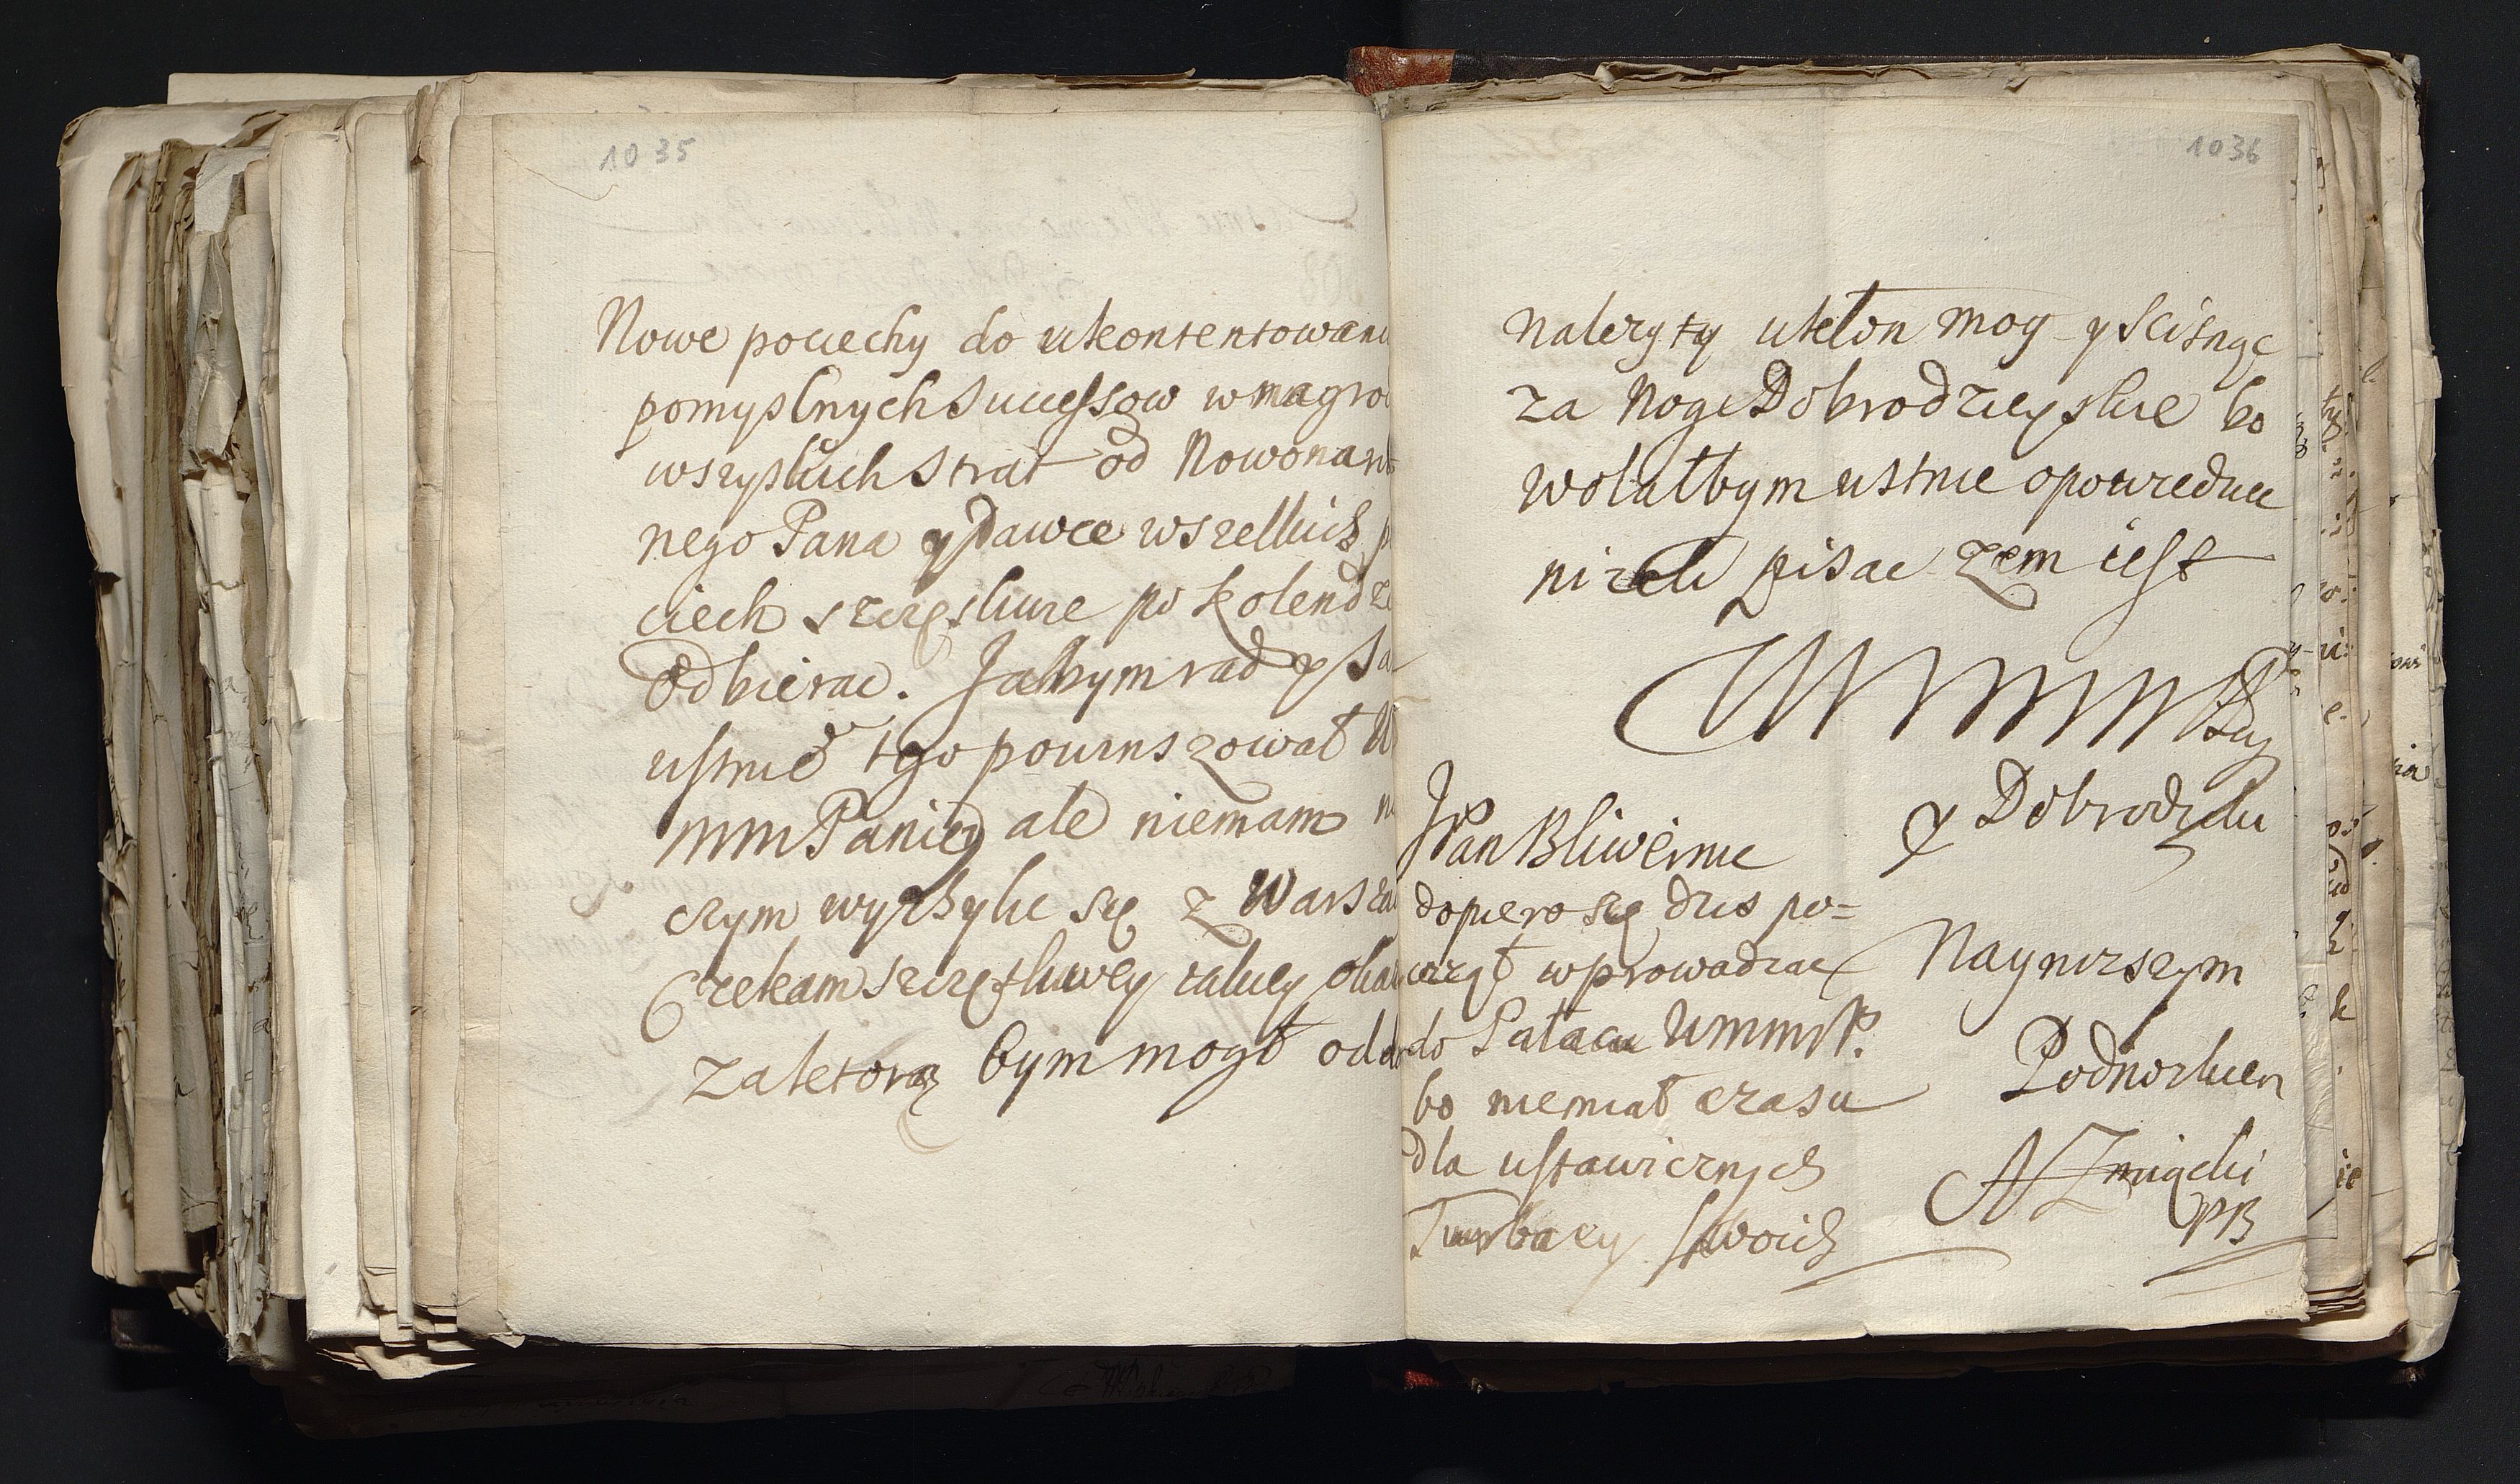 1035
Nowe pociechy do ukontentowani
pomyslnych Successow w nagro
wszyskich strat od Nowonaro
nego Pana y Dawce wszelkich p
ciech szczęsliwie po kolendzi
Odbierac. Jabym rad y sa
ustnie tego powinszowat W
mm Paniey ale niemam n
czym wychylic się z Warsza
Czekam szczęsliwey takiey oka
za ktorą bym mogł odda
1036
Nalezyty ukłon moy y scisnąc
za Noge Dobrodzieyskie bo
wolałbym ustnie opowiedziec
nizeli pisac zem iest
WMMM P
y Dobrodzki
Naynizszym
Podnozkiem
A Zmiącki
PB
JPan Bliwernic
dopiero się dzis po=
cząt wprowadzac
do Pałacu WMMP.
bo niemiał czasu
dla ustawicznych
Turbacy swoich